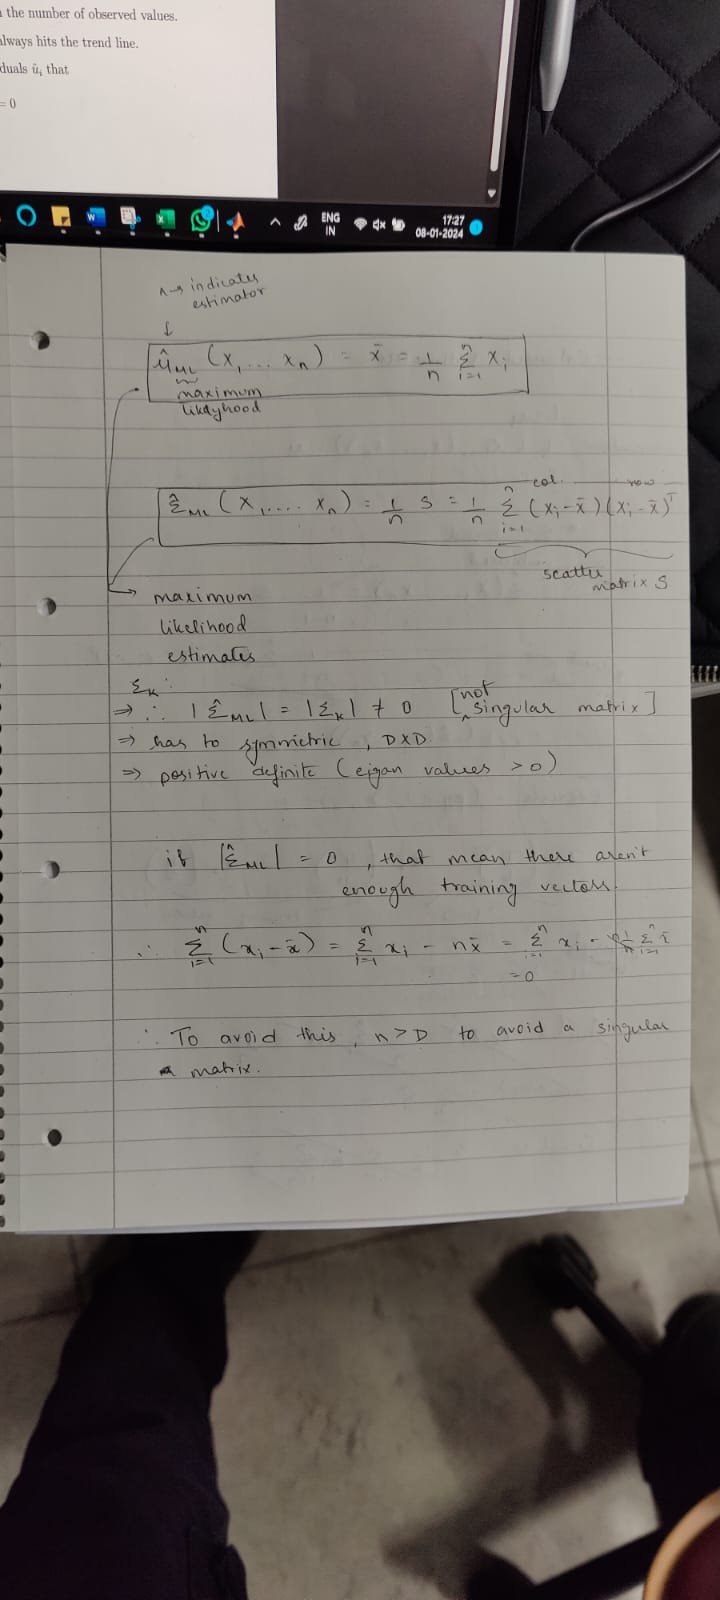 the number of observed values.
always hits the trend line.
duals ûᵢ that
= 0
ENG
IN
17:27
08-01-2024
^ → indicates
estimator
↓
μ̂_ML (x₁ ... xₙ) = x̄ = 1/n Σⁿᵢ₌₁ xᵢ
maximum
likelyhood
col. row
Σ̂_ML (x₁, .... xₙ) = 1/n S = 1/n Σⁿᵢ₌₁ (xᵢ - x̄)(xᵢ - x̄)ᵀ
scatter
matrix S
maximum
likelihood
estimates
Σ_K :
⇒ ∴ |Σ̂_ML| = |Σ_K| ≠ 0 [not singular matrix]
⇒ has to symmetric, D×D.
⇒ positive definite (eigan values > 0)
if |Σ̂_ML| = 0, that mean there aren't
enough training vectors.
∴ Σⁿᵢ₌₁ (xᵢ - x̄) = Σⁿᵢ₌₁ xᵢ - nx̄ = Σⁿᵢ₌₁ xᵢ -
= 0
∴ To avoid this, n > D to avoid a singular
matrix.